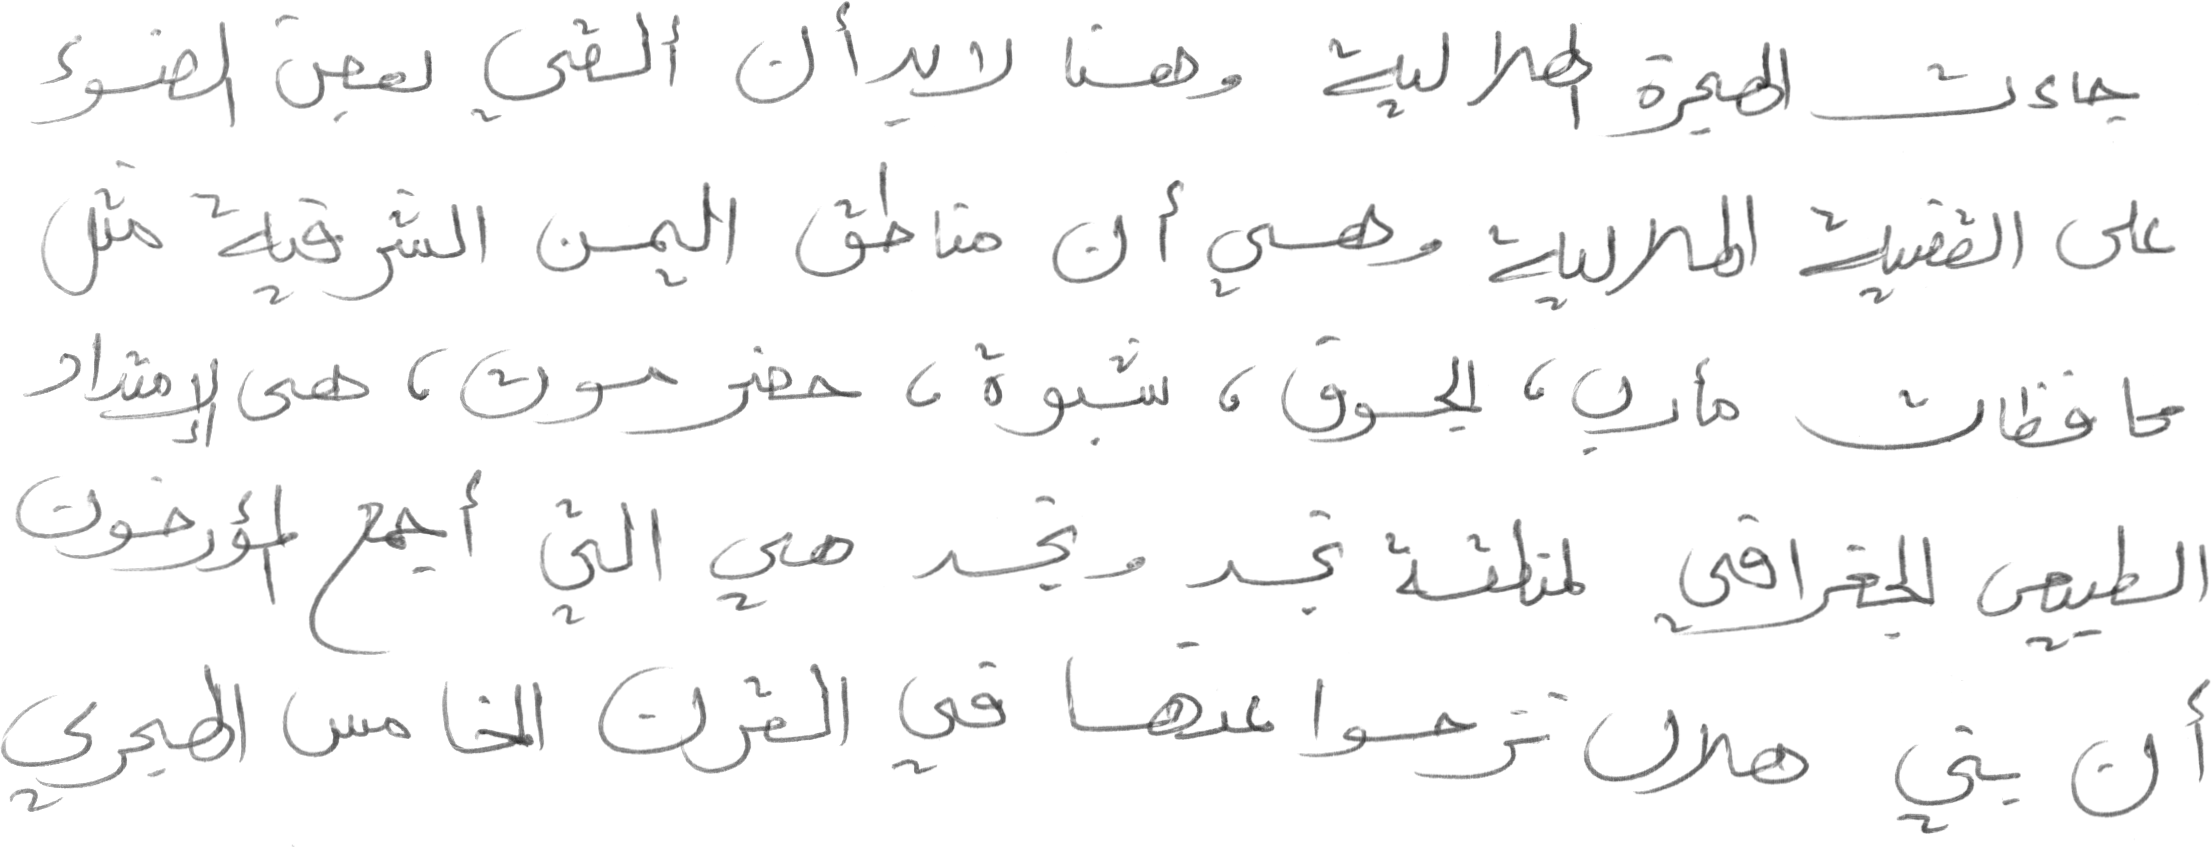 جاءت الهجرة الهلالية وهنا لابد أن ألقي بعض الضوء
على القضية الهلالية وهي أن مناطق اليمن الشرقية مثل
محافظات مأرب، الجوف، شبوة، حضرموت، هي الإمتداد
الطبيعي الجغرافي لمنطقة نجد ونجد هي التي أجمع المؤرخون
أن بني هلال نزحوا عنها في القرن الخامس الهجري